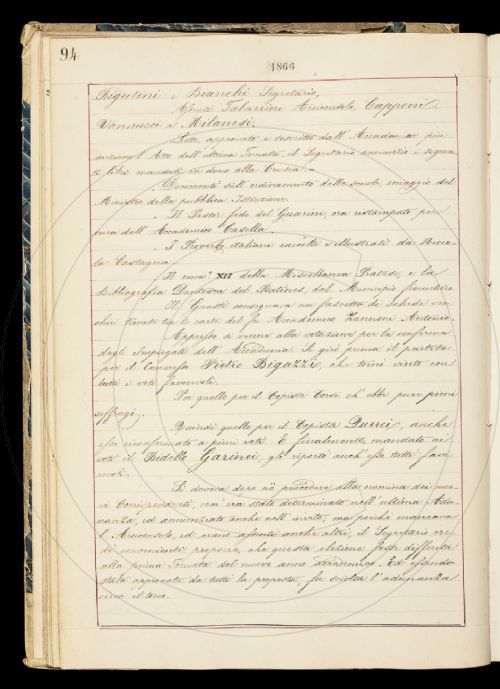 94
1866
Rigutini e Bianchi Segretario,
Assenti Tabarrini Arciconsolo, Capponi,
Vannucci e Milanesi.
Letto, approvato e sottoscritto dall' Accademia più
anziano l' Atto dell' ultima Tornata, il Segretario annunzia i seguen-
ti libri mandati in dono alla Crusca.
Documenti sull' ordinamento delle scuole, omaggio del
Ministro della pubblica Istruzione.
Il Pastor fido del Guarini, ora ristampato per
cura dell' Accademico Casella.
I Proverbi italiani raccolti e illustrati da Nicco-
la Castagna.
Il num.° XII della Miscellanea Pratese, e la
Bibliografia Dantesca del Batines, dal Municipio fiorentino.
Il Guasti consegnava un fascetto di Schede vec-
chie trovate tra le carte del fu Accademico Zannoni Antonio.
Appresso si venne alla votazione per la conferma
degli Impiegati dell' Accademia. Si girò prima il partito
per il Comesso Pietro Bigazzi, che restò vinto con
tutti i voti favorevoli.
Poi quello per il Copista Corsi ch' ebbe pure pieni
suffragi.
Quindi quello per il Copista Ducci, anche
esso riconfermato a pieni voti. E finalmente mandato ai
voti il Bidello Garinei, gli riportò anch' esso tutti favo-
revoli.
Si doveva dopo ciò procedere alla nomina dei nuo-
vi Corrispondenti, com' era stato determinato nell' ultima Adu-
nanza, ed annunziato anche nell' invito; ma poichè mancava
l' Arciconsolo, ed erano assenti anche altri, il Segretario cre-
dè conveniente proporre, che questa elezione fosse differita
alla prima Tornata del nuovo anno accademico. Ed essendo
stata approvata da tutti la proposta, fu sciolta l' adunanza
circa il tocco.